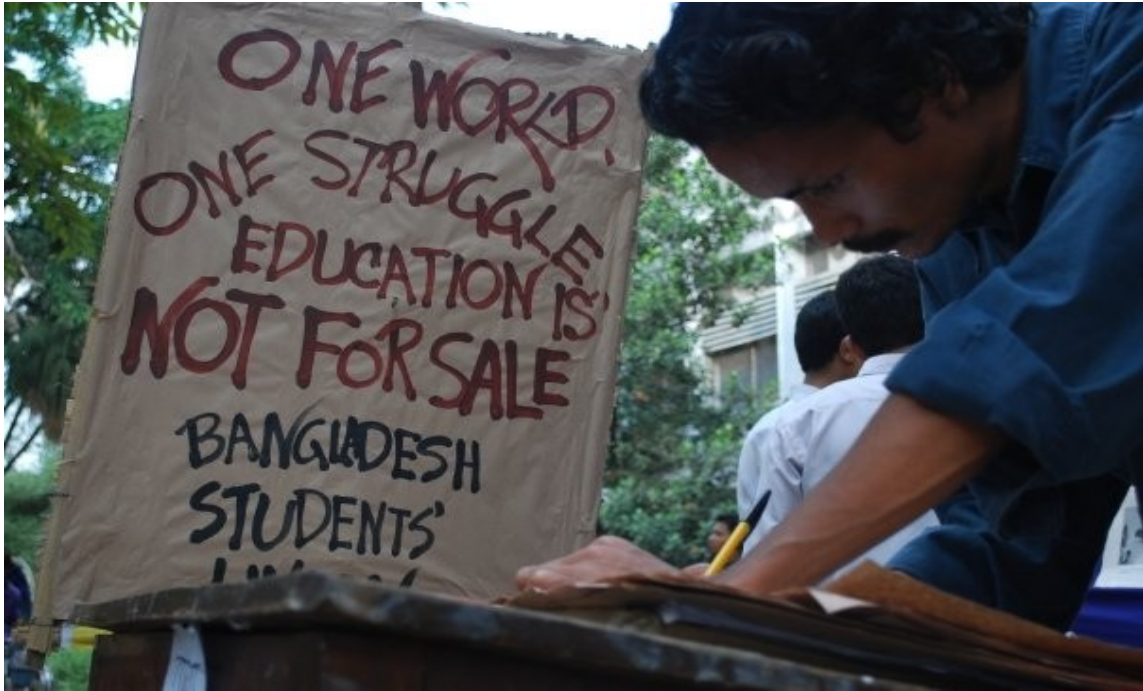 ONE WORLD,
ONE STRUGGLE
EDUCATION IS
NOT FOR SALE
BANGLADESH
STUDENTS'